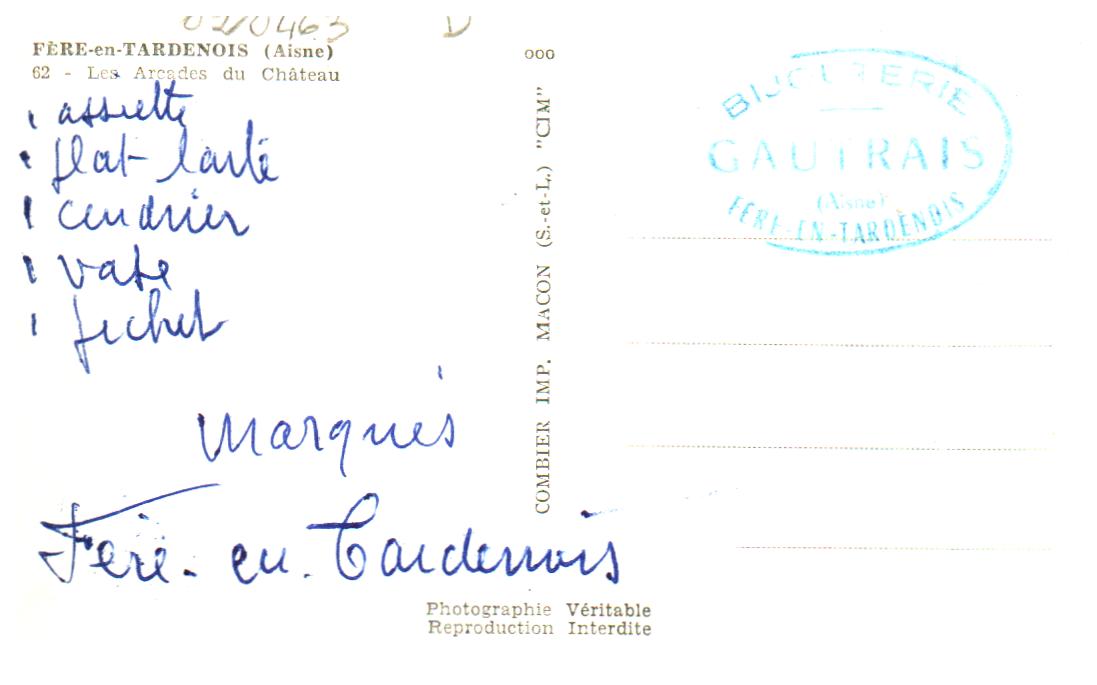 02/0463 D
FÈRE-en-TARDENOIS (Aisne)
62 - Les Arcades du Château
1 assiette
1 plat tarte
1 cendrier
1 vase
1 pichet
Marqués
Fère-en-Tardenois
ooo
COMBIER IMP. MACON (S.-et-L.) "CIM"
BIJOUTERIE
GAUTRAIS
(Aisne)
FÈRE-EN-TARDENOIS
Photographie Véritable
Reproduction Interdite